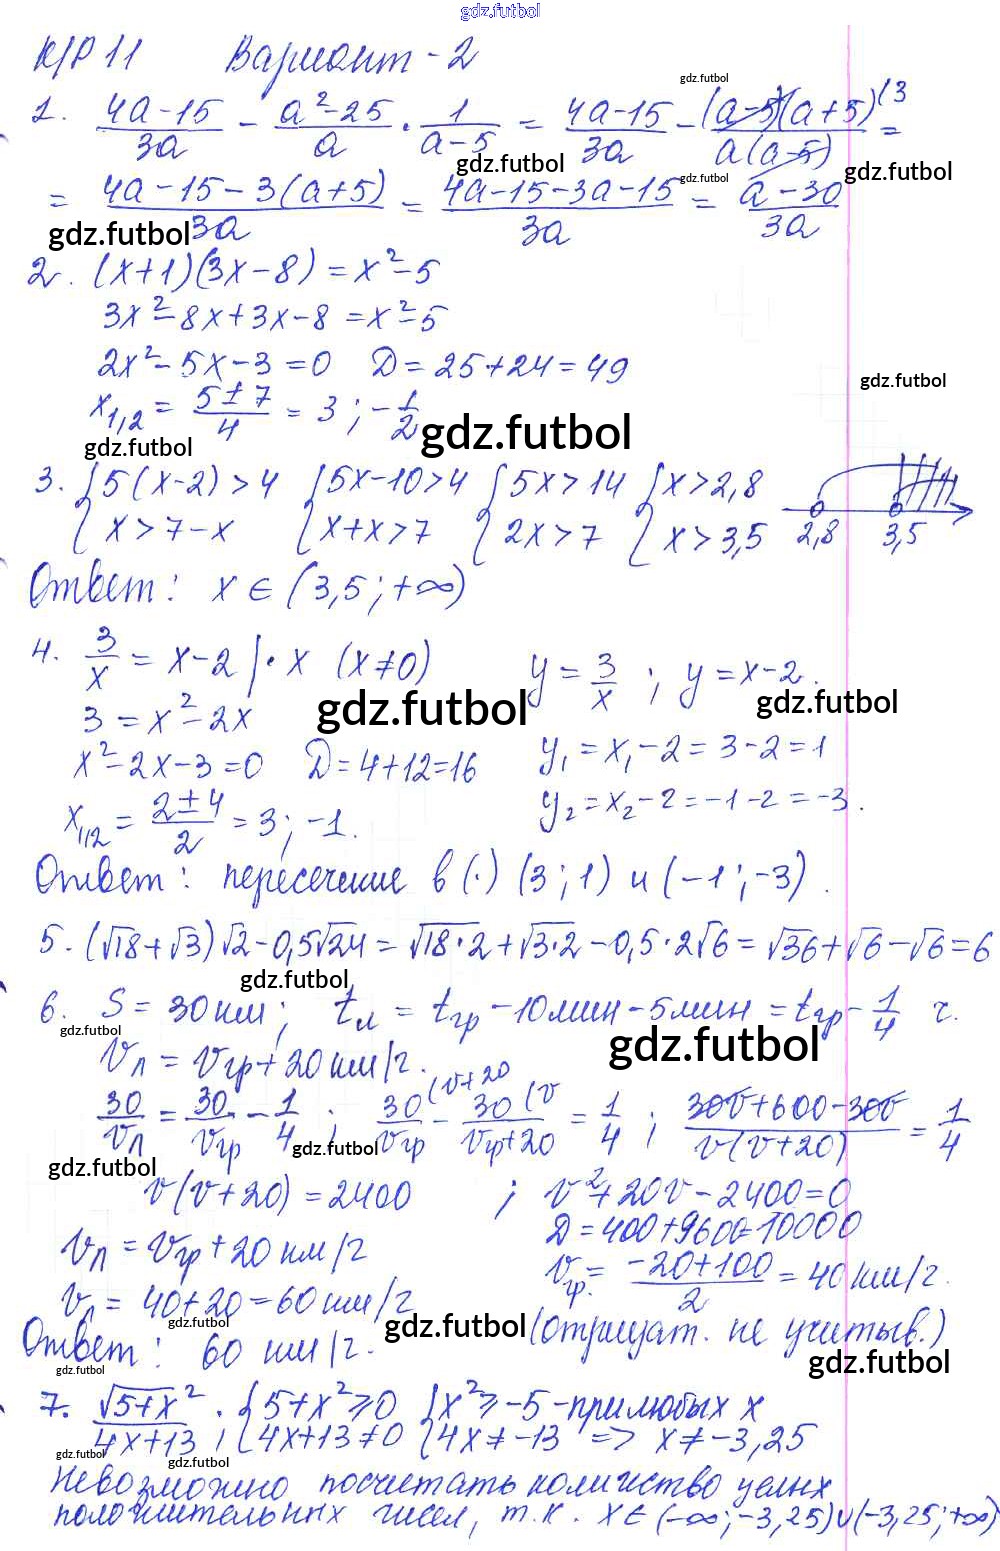 gdz.futbol
К/Р 11 Вариант - 2
gdz.futbol
1. (4a-15)/(3a) - (a²-25)/a · 1/(a-5) = (4a-15)/(3a) - ((a-5)(a+5)⁽³)/(a(a-5)) =
gdz.futbol gdz.futbol gdz.futbol
= (4a-15-3(a+5))/(3a) = (4a-15-3a-15)/(3a) = (a-30)/(3a)
gdz.futbol
2. (x+1)(3x-8) = x²-5
3x²-8x+3x-8 = x²-5
2x²-5x-3=0 D=25+24=49
gdz.futbol
x₁,₂ = (5±7)/4 = 3 ; -1/2
gdz.futbol gdz.futbol
3. { 5(x-2)>4 { 5x-10>4 { 5x>14 { x>2,8
x>7-x x+x>7 2x>7 x>3,5 2,8 3,5
Ответ: x ∈ (3,5; +∞)
4. 3/x = x-2 |· x (x≠0) y = 3/x ; y = x-2.
gdz.futbol gdz.futbol
3 = x²-2x
x²-2x-3=0 D=4+12=16 y₁ = x₁-2 = 3-2 = 1
x₁,₂ = (2±4)/2 = 3; -1. y₂ = x₂-2 = -1-2 = -3.
Ответ: пересечение в (·) (3;1) и (-1;-3).
5. (√18+√3)√2-0,5√24 = √18·2+√3·2-0,5·2√6 = √36+√6-√6=6
gdz.futbol
6. S = 30 км; tл = tгр -10 мин - 5 мин = tгр - 1/4 ч.
gdz.futbol gdz.futbol
vл = vгр + 20 км/ч.
30/vл = 30/vгр - 1/4 ; 30/vгр ⁽v+20 - 30/(vгр+20) ⁽v = 1/4 ; (30v+600-30v)/(v(v+20)) = 1/4
gdz.futbol gdz.futbol
v(v+20) = 2400 ; v²+20v-2400=0
D=400+9600=10000
vл = vгр + 20 км/ч
vгр. = (-20+100)/2 = 40 км/ч.
vл = 40+20 = 60 км/ч
gdz.futbol gdz.futbol
(отрицат. не учитыв.)
Ответ: 60 км/ч.
gdz.futbol gdz.futbol
7. √5+x²/(4x+13) ; { 5+x²≥0 { x²≥-5 - при любых x
4x+13≠0 4x≠-13 => x≠-3,25
gdz.futbol gdz.futbol
Невозможно посчитать количество целых
положительных чисел, т.к. x∈(-∞;-3,25)∪(-3,25;+∞)